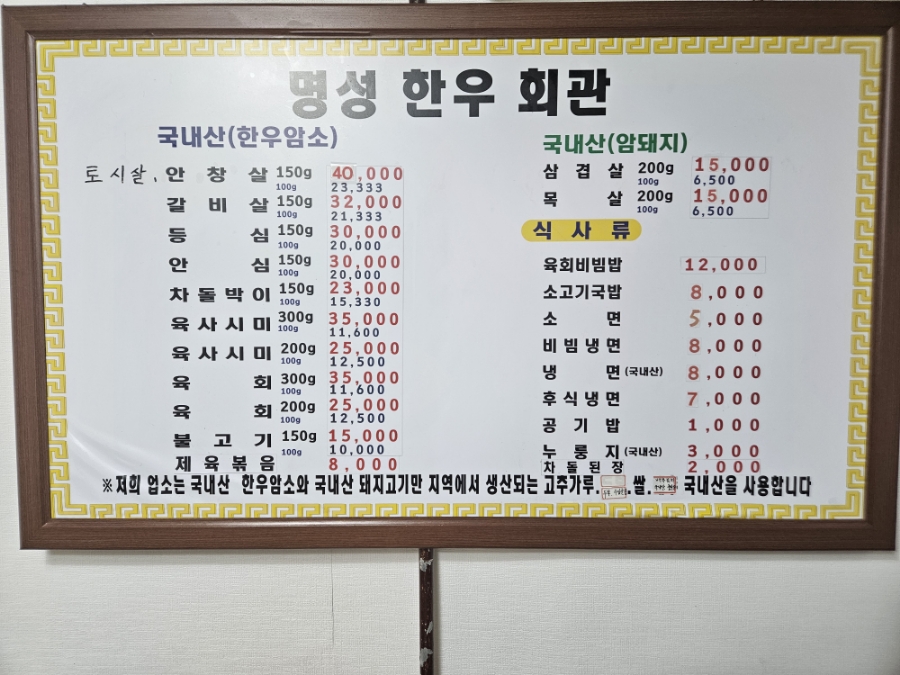 명성 한우 회관
국내산(한우암소)
토시살, 안창살 150g 40,000
100g 23,333
갈비살 150g 32,000
100g 21,333
등심 150g 30,000
100g 20,000
안심 150g 30,000
100g 20,000
차돌박이 150g 23,000
100g 15,330
육사시미 300g 35,000
100g 11,600
육사시미 200g 25,000
100g 12,500
육회 300g 35,000
100g 11,600
육회 200g 25,000
100g 12,500
불고기 150g 15,000
100g 10,000
제육볶음 8,000
국내산(암돼지)
삼겹살 200g 15,000
100g 6,500
목살 200g 15,000
100g 6,500
식사류
육회비빔밥 12,000
소고기국밥 8,000
소면 5,000
비빔냉면 8,000
냉면(국내산) 8,000
후식냉면 7,000
공기밥 1,000
누룽지(국내산) 3,000
차돌된장 2,000
※저희 업소는 국내산 한우암소와 국내산 돼지고기만 지역에서 생산되는 고추가루. 쌀. 국내산을 사용합니다